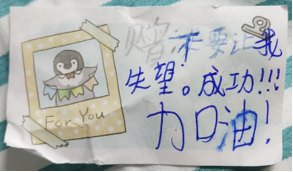 不要让我
失望。成功!!!
加油!
For You